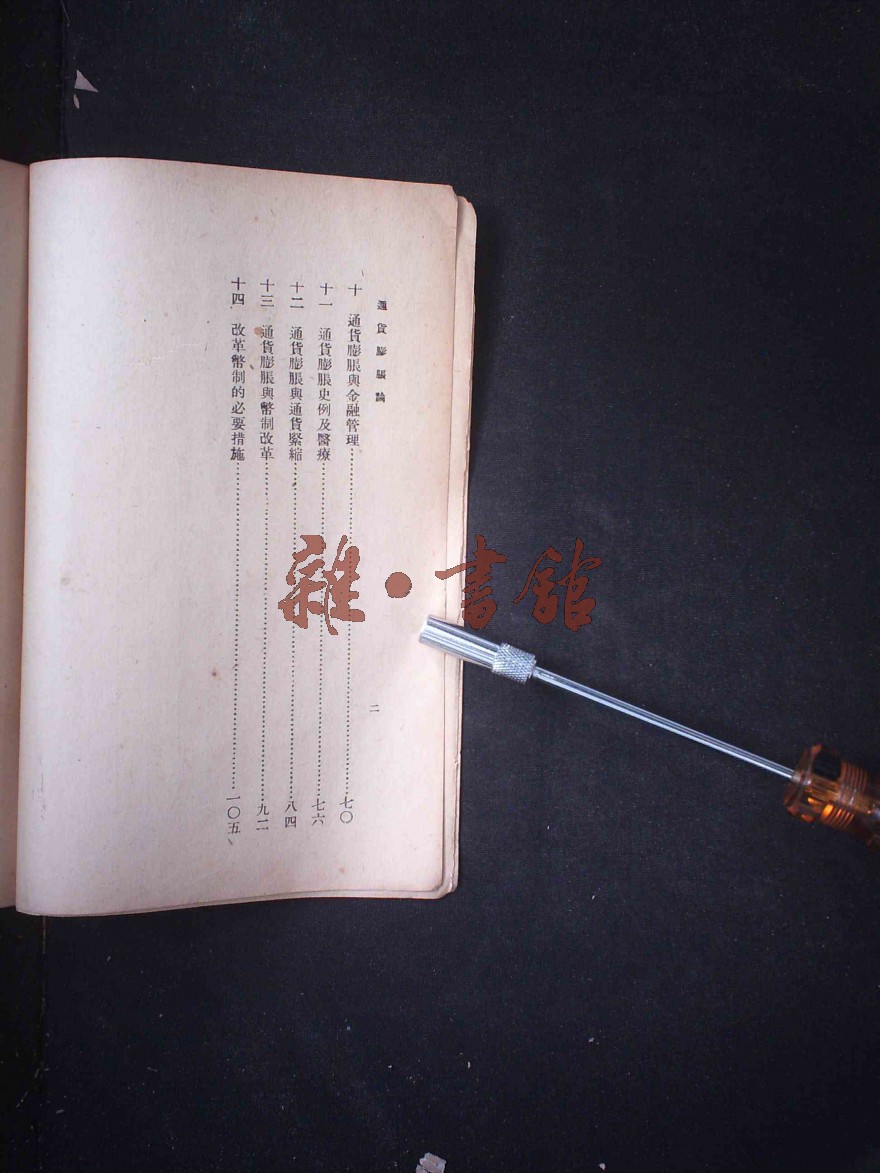 通貨膨脹論
十　通貨膨脹與金融管理……七〇
十一　通貨膨脹史例及醫療……七六
十二　通貨膨脹與通貨緊縮……八四
十三　通貨膨脹與幣制改革……九二
十四　改革幣制的必要措施……一〇五
二
雜·書館